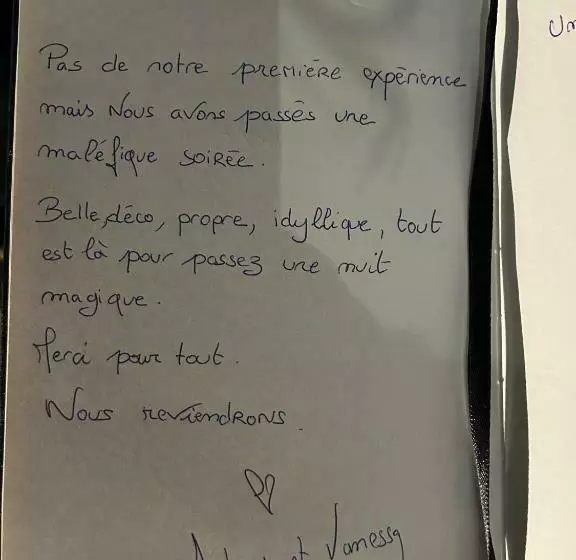 Pas de notre première expérience
mais Nous avons passés une
maléfique soirée.
Belle, déco, propre, idyllique, tout
est là pour passez une nuit
magique.
Merci pour tout.
Nous reviendrons.
et Vanessa